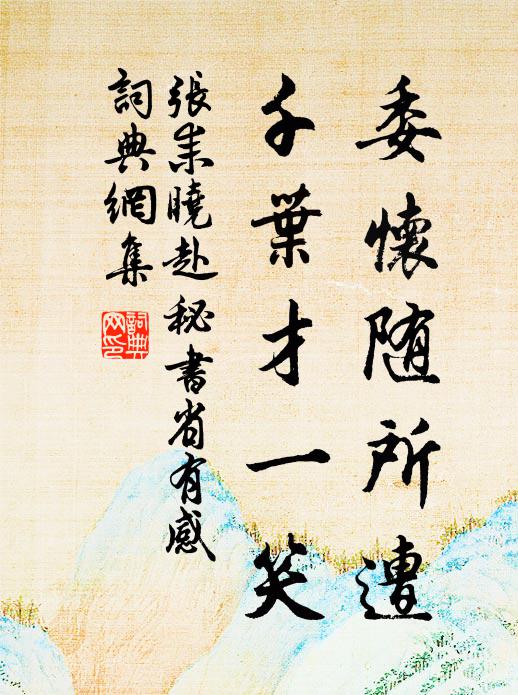 委懷随所遭
千葉才一笑
張耒曉赴秘書省有感
詞典網集
詞典网印